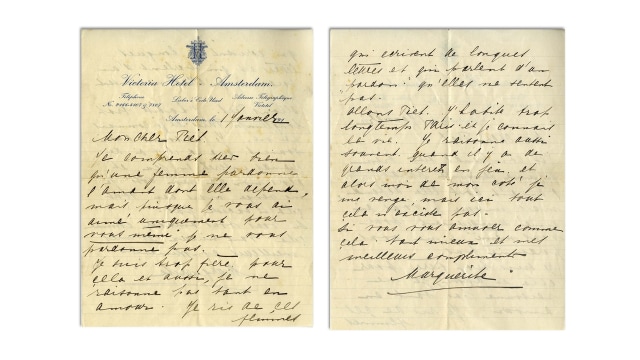 Victoria Hotel - Amsterdam.
Téléphone
Lieber's Code Used
Adresse Télégraphique
Amsterdam le 1 Janvier
Mon cher Piet
Je comprends très bien
qu'une femme pardonne
l'amant dont elle dépend,
mais puisque je vous ai
aimé uniquement pour
vous même je ne vous
pardonne pas.
Je suis trop fière, pour
cela et aussi, je ne
raisonne pas tant en
amour. Je ris de ces
femmes
qui écrivent de longues
lettres et qui parlent d'un
pardon qu'elles ne sentent
pas.
Allons Piet. J'habite trop
longtemps Paris et je connais
la vie. Je raisonne aussi
souvent quand il y a de
grands interêts en jeu et
alors moi de mon coté je
me venge, mais ici tout
cela n'existe pas.
Si vous vous amusez comme
cela tant mieux et mes
meilleurs compliments
Marguerite